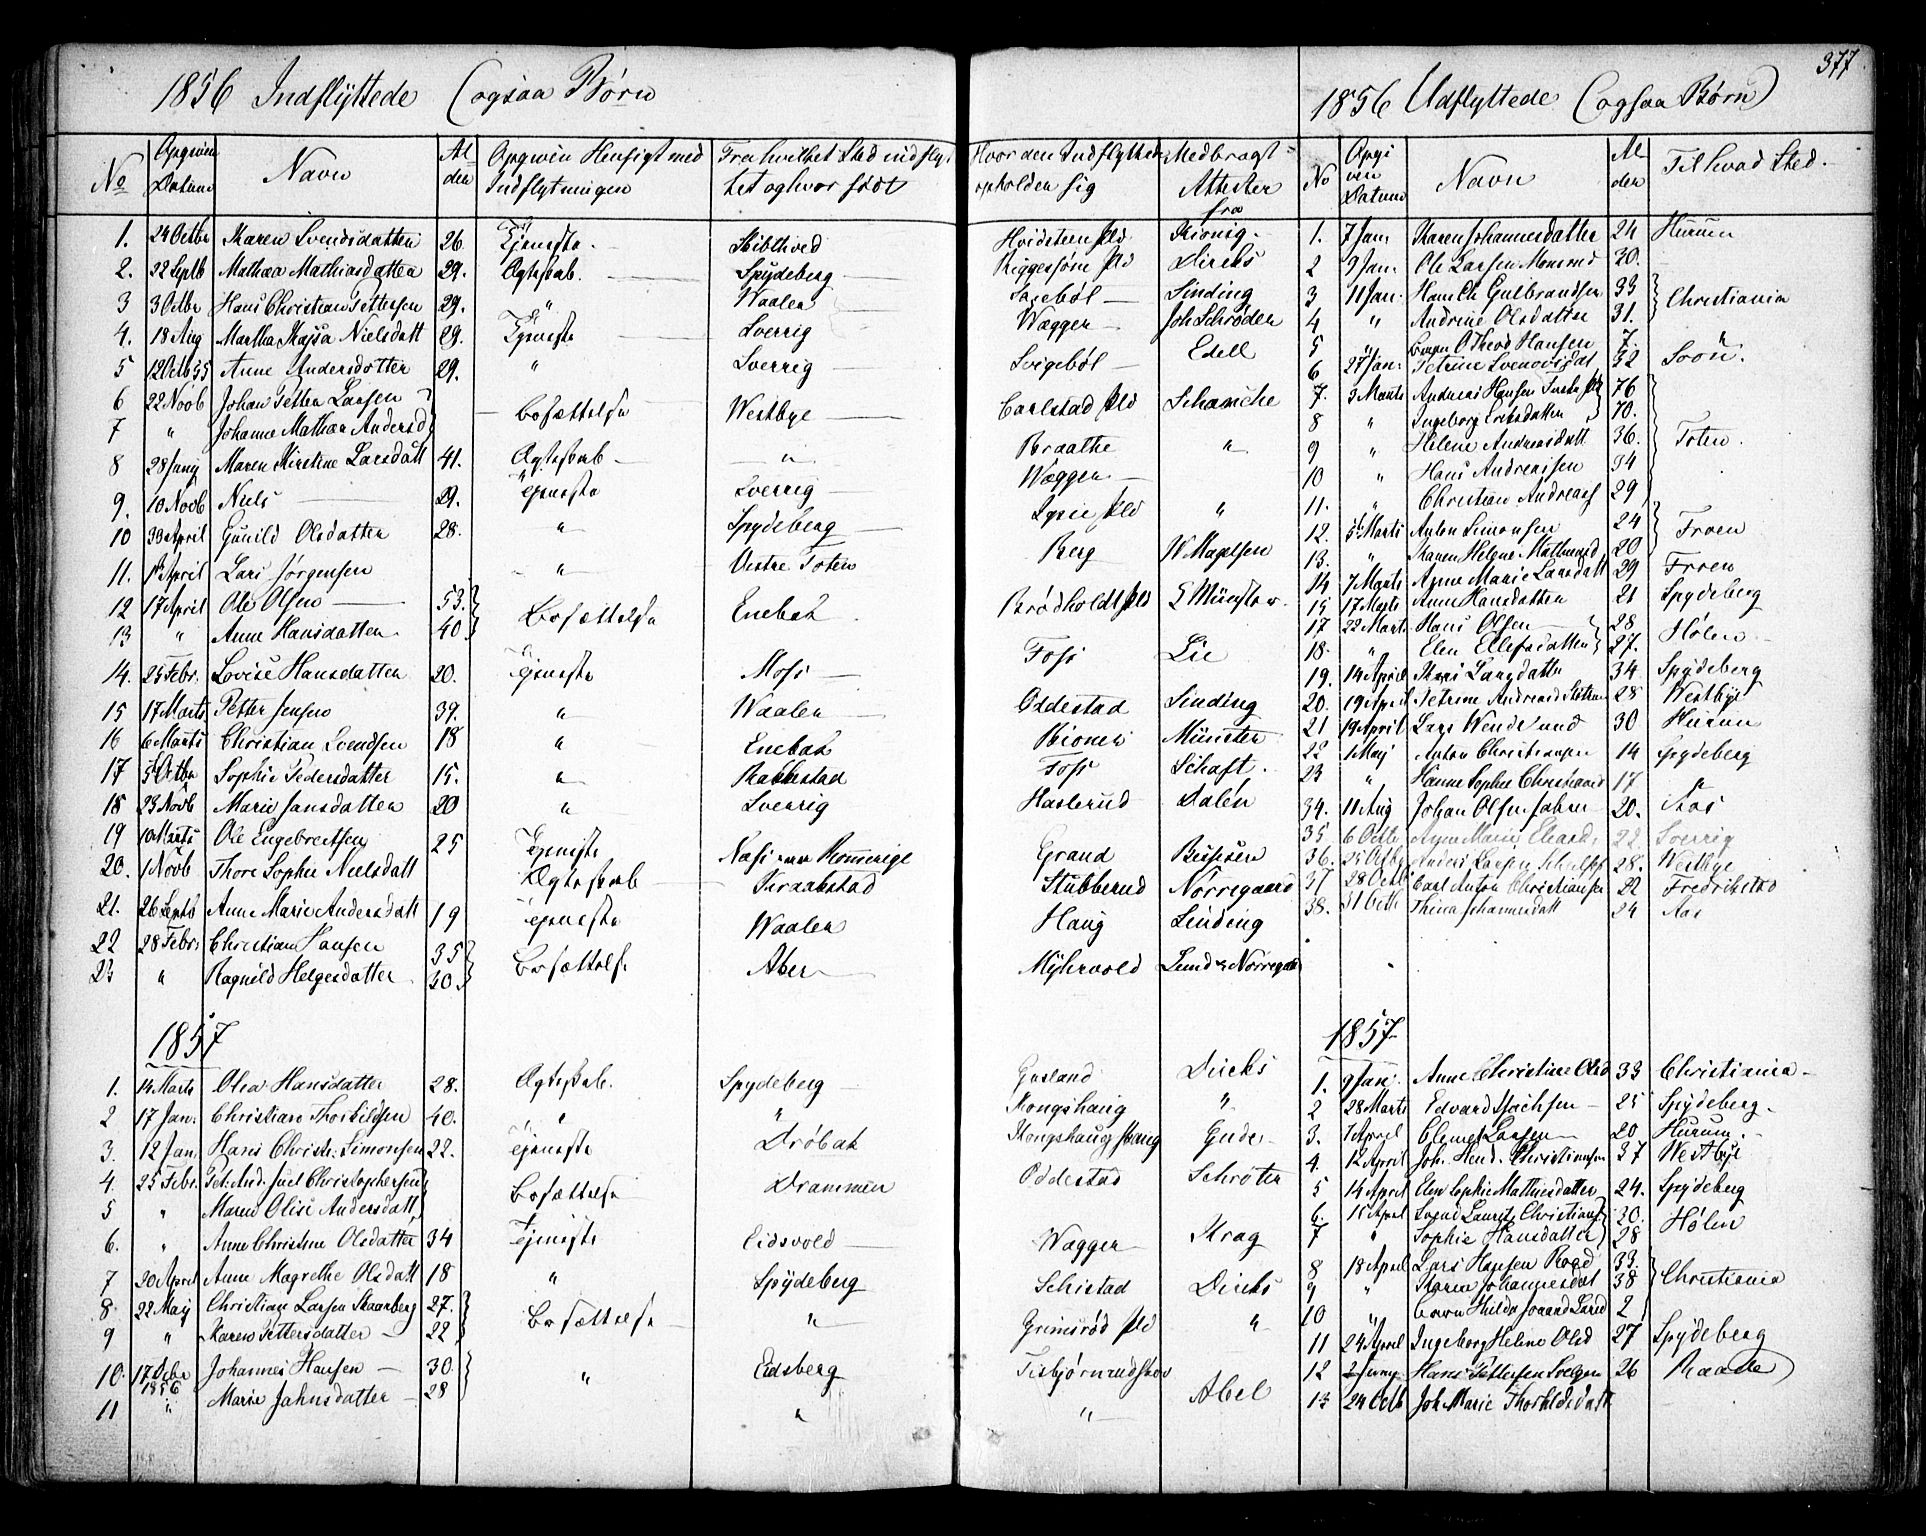 377
1856 Indflyttede (ogsaa Børn
No | Opgiven Datum | Navn | Alden | Opgiven Hensigt med Indflytningen | Fra hvilket Sted indflyttet og hvor født | Hvor den Indflyttede opholder sig | Medbragt Attester fra
1. 24 Octbr Maren Svendsdatter 26. Tjeneste Skibthved Hvidsteen Pld Kionig
2. 22 Septb Mathea Mathiasdatter 29. Ægteskab. Spydeberg Riggesjøne Pld Diricks
3 3 Octbr Hans Christian Pettersen 29. " Waaler Sagebøl Sinding
4. 18 Aug Martha Kajsa Nielsdatt 29. Tjeneste Sverrig Wægger Joh Schrøder
5 12 Octb 55 Anne Andersdatter 29. " Sverrig Svigebøl Edell
6 22 Novb Johan Petter Larsen Bosættelse Westbye Carlstad Pld Schanche
7 " Johanne Mathea Andersd Braathe "
8 28 Janij Maren Kirstine Larsdatt 41. Ægteskab " Wæggen
9. 10 Novb Niels 29. Tjeneste Sverrig Lyrie Pld "
10 30 April Gunild Olsdatter 28. " Spydeberg Berg W Magelsen
11. 1 April Lars Jørgensen " Vestre Toten
12 17 April Ole Olsen 53. Bosættelse Enebak Brødholdt Pld S Münster
13 " Anne Hansdatter 40
14. 25 Febr. Lovise Hansdatter 20. Tjeneste Moss Foss Lie
15 17 Marts Petter Jensen 39. " Waaler Oddestad Sinding
16 6 Marts Christian Svendsen 18 " Enebak Kioner Münster
17 5 Octbr Sophie Pedersdatter 15. " Rakkestad Foss Schaft.
18 23 Novb Marie Jansdatter 20 " Sverrig Haslerud Dalen
19 10 Marts Ole Engebretsen 25 Tjeneste Næs Romerige Grand
20. 1 Novb Thore Sophie Nielsdatt Ægteskab Kraakstad Stubberud Nørregaard
21. 26 Septb Anne Marie Andersdatt 19 Tjeneste Waaler Haug Sinding
22 28 Febr. Christian Hansen 35 Bosættelse Aker Myhrvold Lund & Nørregaa
23 " Ragnild Helgesdatter 30
1857
1. 14 Marts Olea Hansdatter 28. Ægteskab. Spydeberg Gusland Diricks
2 17 Jan. Christian Thorkildsen 40. " " Kongshaug "
3. 12 Jan Hans Christ: Simonsen 22. Tjeneste Drøbak Kongshaug Haug Gude
4. 25 Febr. Pet: And: Juel Christophersen Bosættelse Drammen Oddestad Schrøter
5 " Maren Olise Andersdatt
6. " Anne Christine Olsdatter 34 Tjeneste Eidsvold Wægger Krag
7 20 April Anne Magrethe Olsdatt 18 " Spydeberg Schistad Diricks
8 22 Maij Christian Larsen Skaarberg 27. Bosættelse " Grimsrød Pld "
9 " Karen Pettersdatter 22
10. 17 Octbr 1856 Johannes Hansen 30 " Eidsberg Abel
11 " Marie Jahnsdatter 28 " "
1856 Udflyttede (ogsaa Børn)
No | Opgiven Datum | Navn | Alden | Til hvad Sted.
1. 7 Jan. Karen Johannesdatter 24 Hurum
2 9 Jan. Ole Larsen 30.
3 11 Jan. Hans Ch Gulbrandsen 33 Christiania
4 " Andrine Olsdatter 31.
5 " Barn O Theod Hansen 7.
6 27 Jan. Petrine Svendsdat 32 Soon.
7. 3 Marts Andreas Hansen 76
8 " Ingeborg Eriksdatter 70.
9 " Helene Andreasdatt 36. Toten.
10 " Hans Andreassen 34
11. " Christian Andreass 29
12. 5 Marts Anton Simonsen 24 Froen
13. " Karen Helene Mathisesd 20
14 7 Marts Agne Marie Larsdatt 29 Froen
15 17 Marts Anne Hansdatter 21 Spydeberg
17 22 Mart. Hans Olsen 28 Hølen
18. " Elen Ellefsdatter 27.
19. 14 April Kari Larsdatter 34 Spydeberg
20. 19 April Petrine Andreasd 28 Westbye
21 19 April Lars Wendelund 30 Hurum
22 1 Maij Anton Christiansen 14 Spydeberg
23 " Hanne Sophie Christiansd 17 "
34. 10 Aug Johan Olsen 20. Aas
35 6 Octb Agne Marie 22. Sverrig
36. 25 Octb Anders Larsen 28. Westbye
37 28 Octb Carl Anton Christiansen 22 Fredrikstad
38. 31 Octb Thina Johannesdatt 24 Aas
1857
1. 9 Jan. Anne Christine Olsd 33 Christiania
2 28 Marts Edvard Isachsen 25 Spydeberg.
3. 7 April Clemet Larsen 20 Hurum.
4. 12 April Joh. Hend. Christiansen 37 Westbye
5 14 April Elen Sophie Mathiesdatter 24. Spydeberg
6. 15 April Svend Laurits Christians 30. Hølen
7 " Sophie Hansdatter 28
8 18 April Lars Hansen 33. Christiania
9 " Karen Johannesdat 38
10 " Barn Hilda Larsd 2
11 24 April Ingeborg Helene Olsd 27 Spydeberg
12 2 Juny Hans Pettersen 26 Raade
13 24 Octb Joh Marie Thorkildsdatt